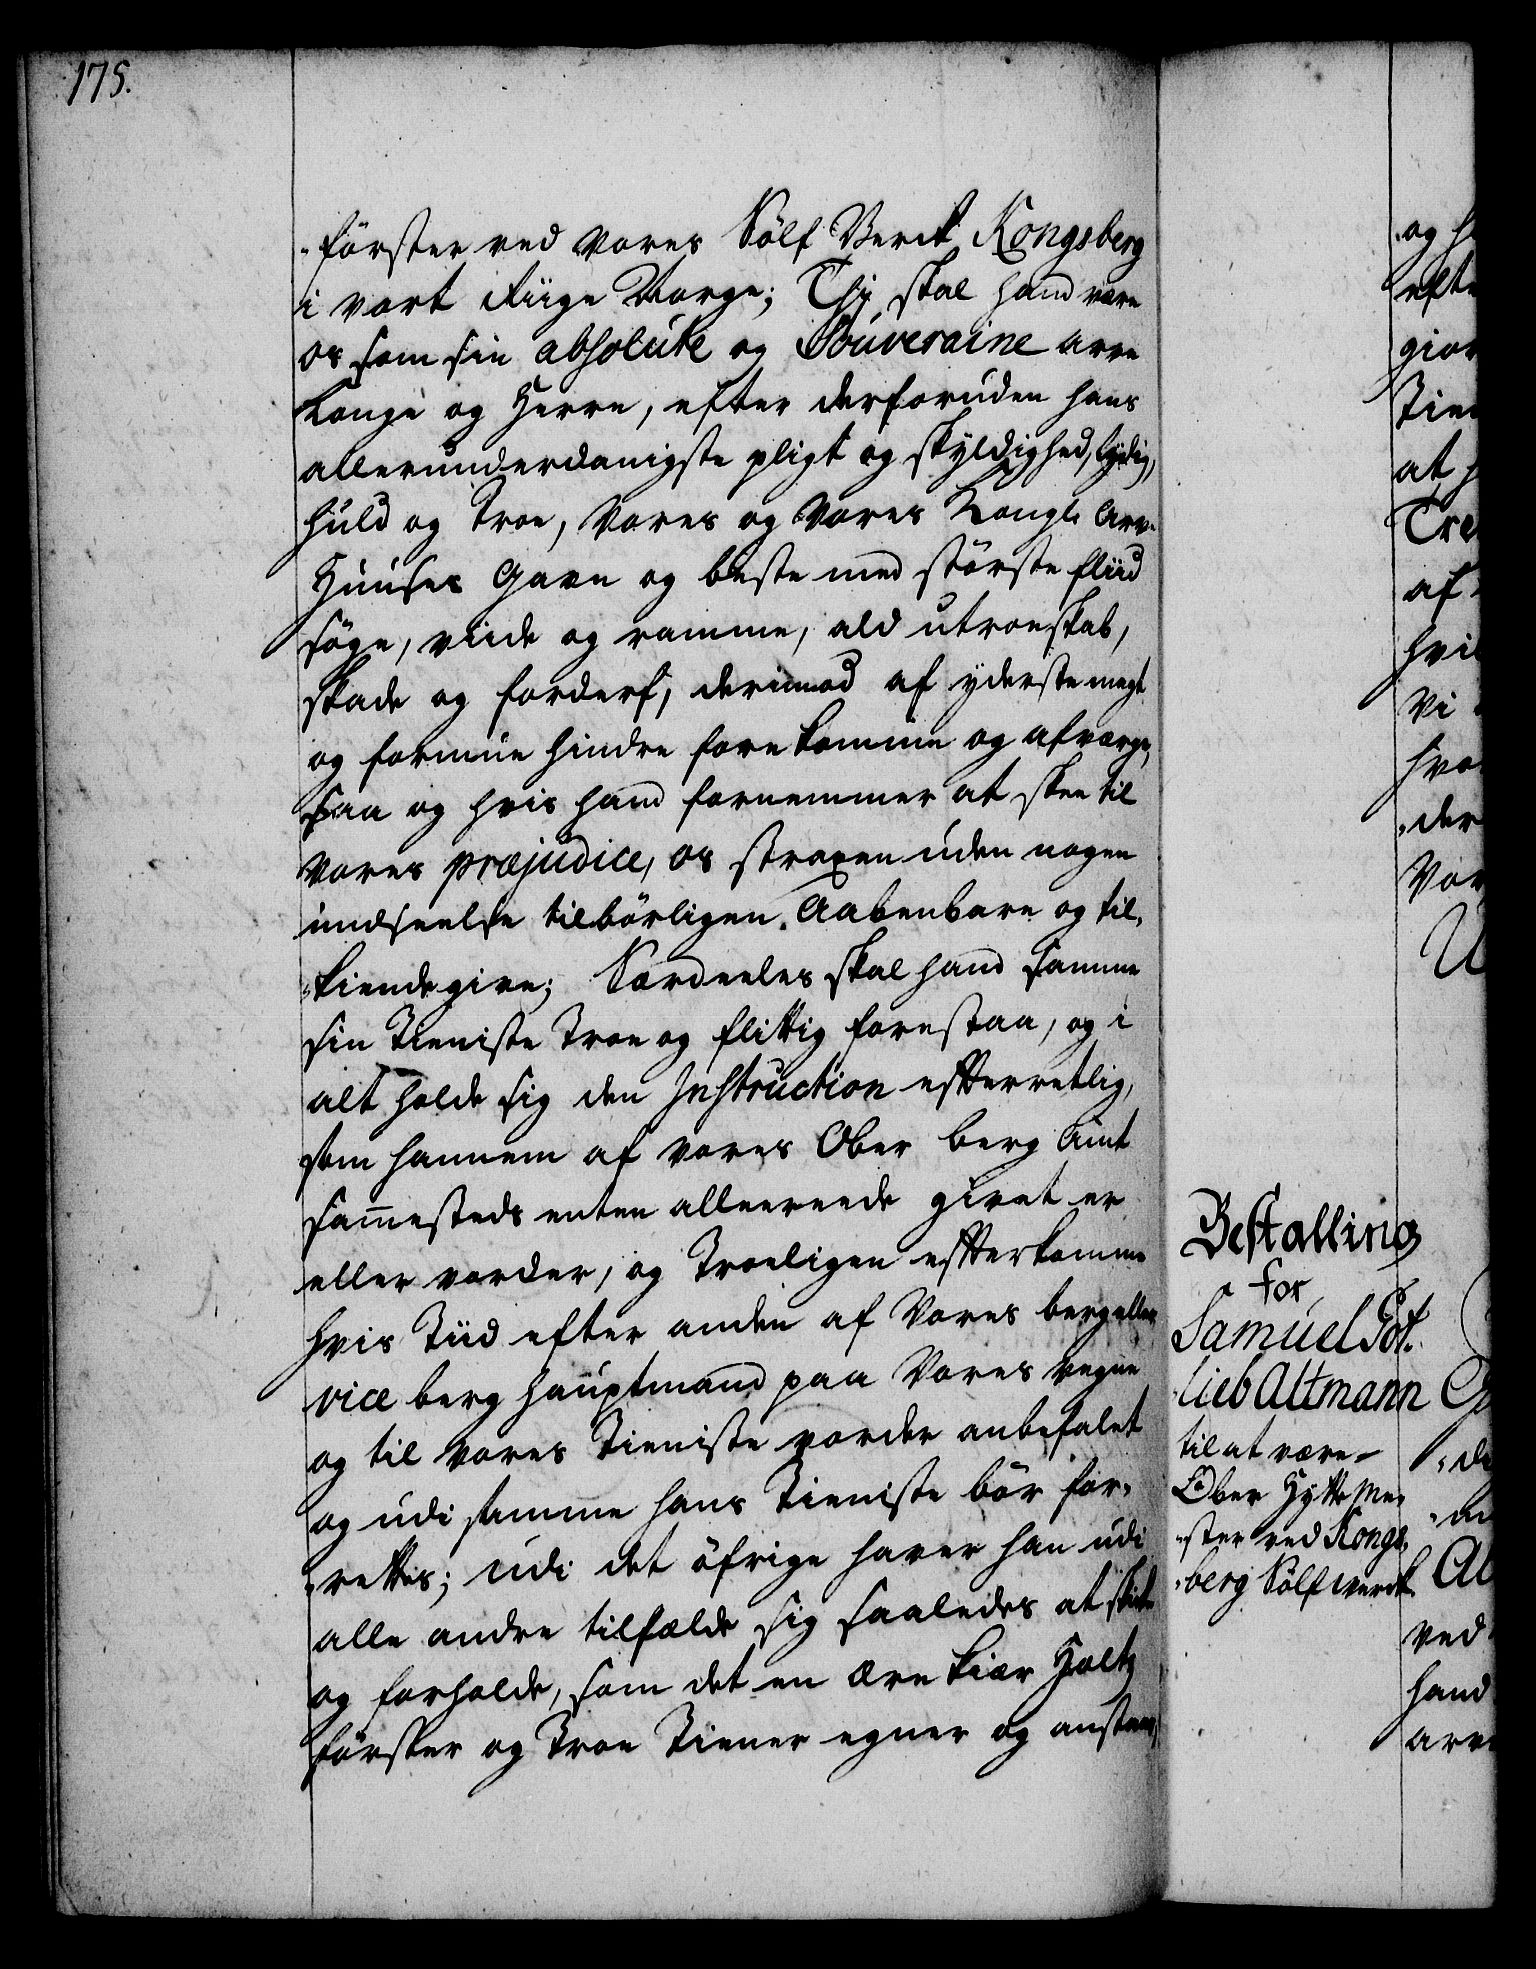 175.
-förster ved vores Sölf Verck Kongsberg
i vort Riige Norge; Thj skal hand være
os som sin absolute og Souveraine arve
Konge og Herre, efter derforuden hans
allerunderdanigste pligt og skyldighed, lydig,
huld og Troe, Vores og Vores Kongl. Arve
Huuses Gavn og beste med störste fliid
söge, viide og ramme, ald utroeskab,
skade og forderf, derimod af yderste magt
og formue hindre forekomme og afværge,
saa og hvis hand fornemmer at skee til
vores præjudice, os straxen uden nogen
undseelse tilbörligen Aabenbare og til-
-kiendegive; Særdeeles skal hand samme
sin Tieniste Troe og flittig forestaa, og i
alt holde sig den Instruction efterretlig,
som hannem af vores Ober berg Amt
sammesteds enten allereede givet er
eller vorder, og Troeligen efterkomme
hvis Tiid efter anden af Vores berg eller
vice berg hauptmand paa Vores vegne
og til vores Tieniste vorder anbefalet
og udi samme hans Tieniste bör for-
-rettes; udi det öfrige haver han udi
alle andre tilfælde sig saaledes at skicke
og forholde, som det en ære kiær Holtz
förster og Troe Tiener egner og anstaar,
Bestalling
for
Samuel Got-
-lieb Altmann
til at være
Ober Hytte Me-
-ster ved Kongs-
-berg Sölf werck
og
efte
gior
Tien
at
Tre
af
hvi
Vi
hvo
-der
Vor
U
-de
Al
ved
hand
arv